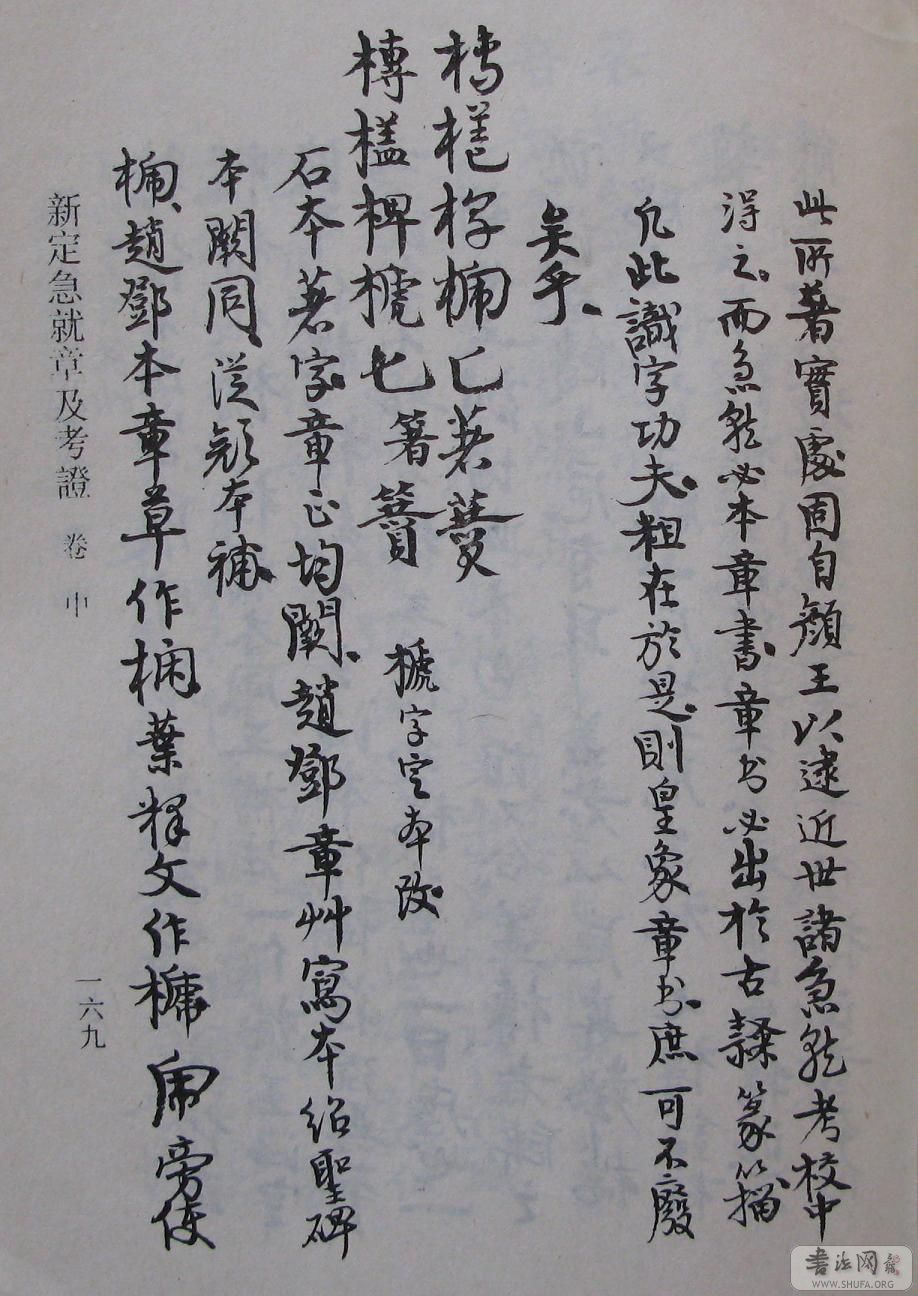 此所著實處固自顏王以逮近世諸急就考校中
得之而急就必本章書章书必出於古隸篆籀
凡此識字功夫粗在於是則皇象章书庶可不廢
矣乎
槫榼椑榹匕箸籫 榹字定本改
石本著字章正均闕趙鄧章艸寫本紹聖碑
本闕同從顏本補
趙鄧本章草作 葉釋文作 旁使
新定急就章及考證 卷中
一六九
書法网
WWW.SHUFA.ORG